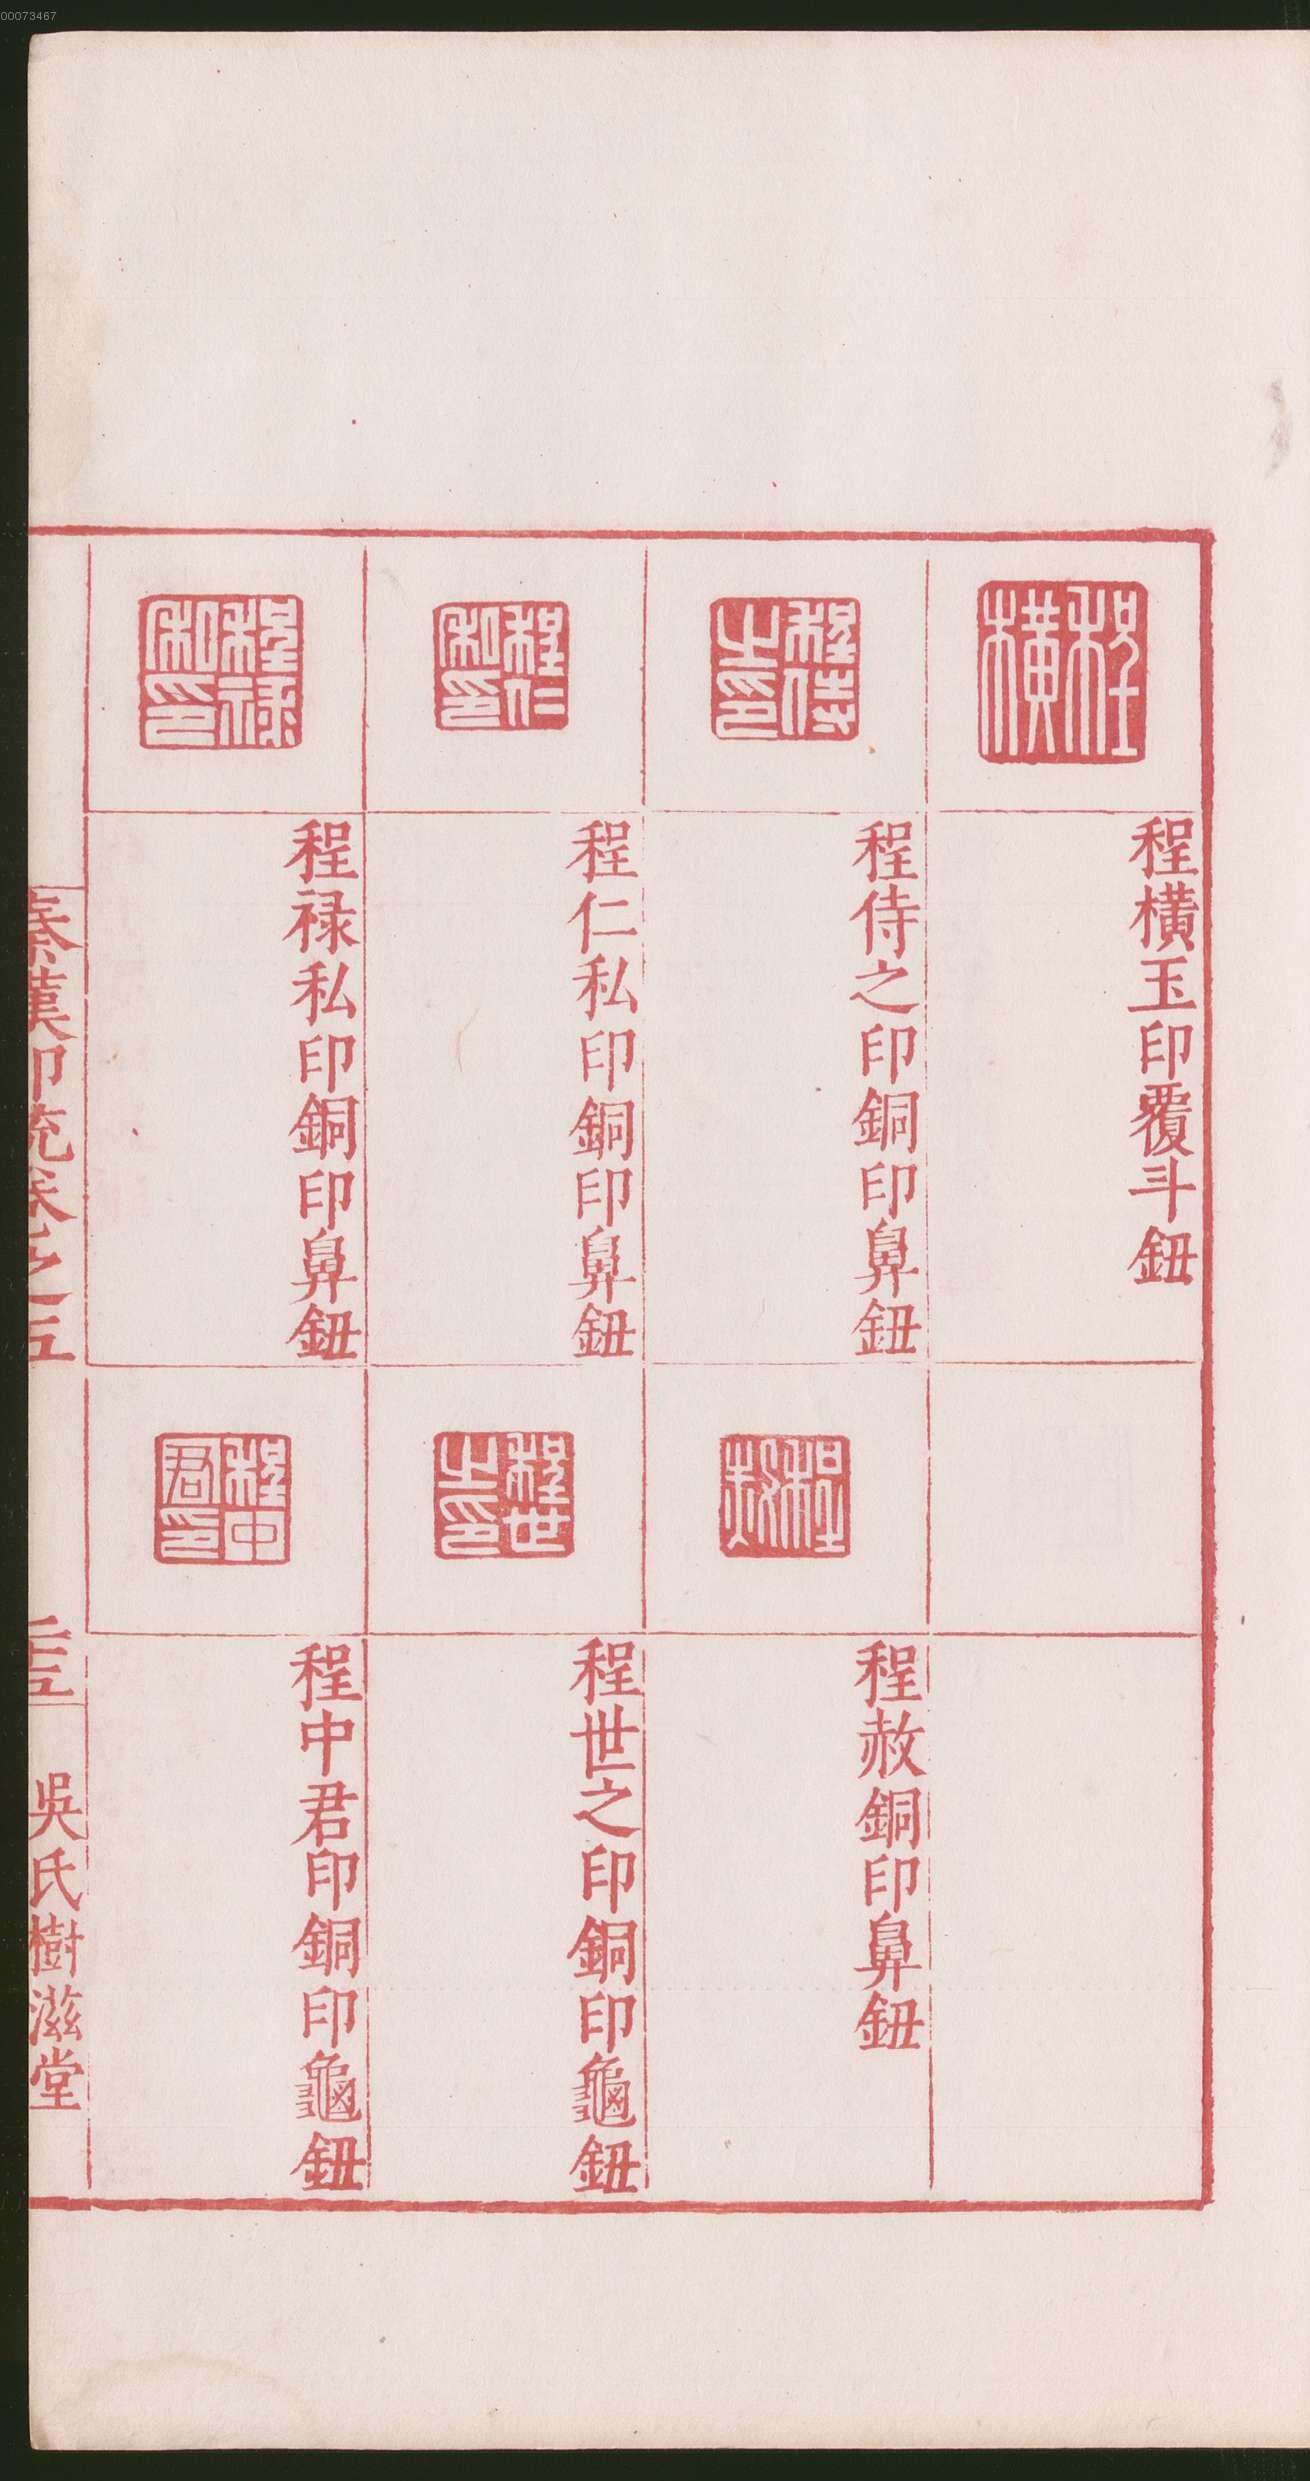 00073467
程橫
程橫玉印覆斗鈕
程侍之印
程侍之印銅印鼻鈕
程赦
程赦銅印鼻鈕
程仁私印
程仁私印銅印鼻鈕
程世之印
程世之印銅印龜鈕
程祿私印
程祿私印銅印鼻鈕
程中君印
程中君印銅印龜鈕
秦漢印統卷之五
吳氏樹滋堂